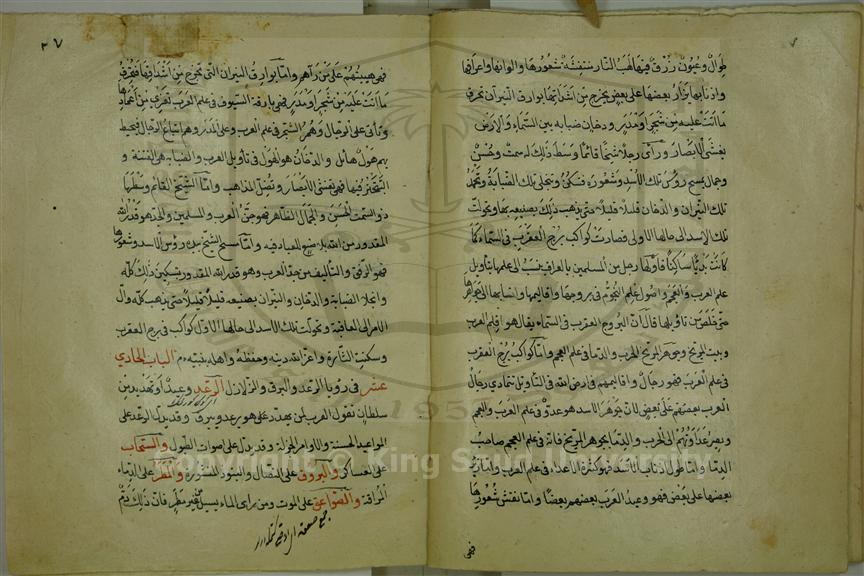 طوال وعيون زرق فيها لهب النار منتفشة شعورها والوانها واعرافها
واذنابها تزأر بعضها على بعض يخرج من اشداقها بوارق النيران تحرق
ما اتت عليه من شجر او مدر ودخان ضبابه بين السماء والارض
يغشى الابصار ورأى رجلا شيخا قائما وسط ذلك له سمت وحسن
وجمال يمسح رؤس تلك الاسد وشعوره فسكن وتنجلى تلك الضبابة وتخمد
تلك النيران والدخان قليلا قليلا حتى يذهب ذلك بصنيعه بها وتحولت
تلك الاسد الى حالها الاولى فصارت كواكب برج العقرب في السماء كما
كانت بديا ساكنا فاولها رجل من المسلمين بالعراق ينسب الى علمها بتأويل
علم العرب والعجم واصول علم النجوم في بروجها واقاليمها وانسابها الى جواهرها
حتى خلص من تأويلها قال ان البروج العقرب في السماء يقال هو اقليم العرب
وبيت المريخ وجوهر المريخ الحرب والدما في علم العجم واما كواكب برج العقرب
في علم العرب فهو رجال واقاليمهم وارض الله في التأويل تتمادى رجال
العرب بعضهم على بعض لان جوهر الاسد هو عدو في علم العرب والعجم
ويصير عداوتهم الى الحرب والدما بجوهر المريخ فانه في علم العجم صاحب
الدما واما طول اذناب الاسد فهو كثرة الاعداء في علم العرب واما زئر
بعضها على بعض فهو وعيد العرب بعضهم بعضا واما نفش شعورها
فهي
٢٧
فهي هيبتهم على من رآهم واما بوارق النيران التي تخرج من اشداقها فتحرق
ما اتت عليه من شجر او مدر فهي بارقة السيوف في علم العرب تفرق من اغمادها
وتأتي على الرجال وهم الشجر في علم العرب وعلى المدر وهم اتباع الرجال فيحيط
بهم هول هائل والدخان هو الهول في تأويل العرب والضبابه هي الفتنة و
التحير فيها فهي تغشى الابصار وتضل المذاهب واما الشيخ القائم وسطها
ذو السمت الحسن والجمال الظاهر فهو حق العرب والمسلمين والجد هو قدر الله
المقدور من الله بلا صنيع للعباد فيه واما مسح الشيخ بيده رؤس الاسد وشعورها
فهو الرفق والتأليف من جد العرب وهو قدر الله المقدور تسكين ذلك كله
وانجلاء الضبابة والدخان والنيران بصنيعه قليلا قليلا حتى يذهب كله وآل
الامر الى العافية وتحولت تلك الاسد الى حالها الاول كواكب في برج العقرب
وسكنت الثائرة واعز الله دينه وحفظه واهله بنبيه م الباب الحادي
عشر في رؤيا الرعد والبرق والزلازل الرعد وعيد او تهديد من
سلطان تقول العرب لمن يهدد على هو يرعد ويبرق وقد يدل الرعد على
المواعيد الحسنة والاوامر الجزلة وقد يدل على اصوات الطبول والسحاب
على العساكر والبروق على النصال والبنود المنشورة والمطر على الدماء
المراقة والصواعق على الموت ومن رأى الماء يسيل بغير مطر فان ذلك دم
Copyright © King Saud University
1957